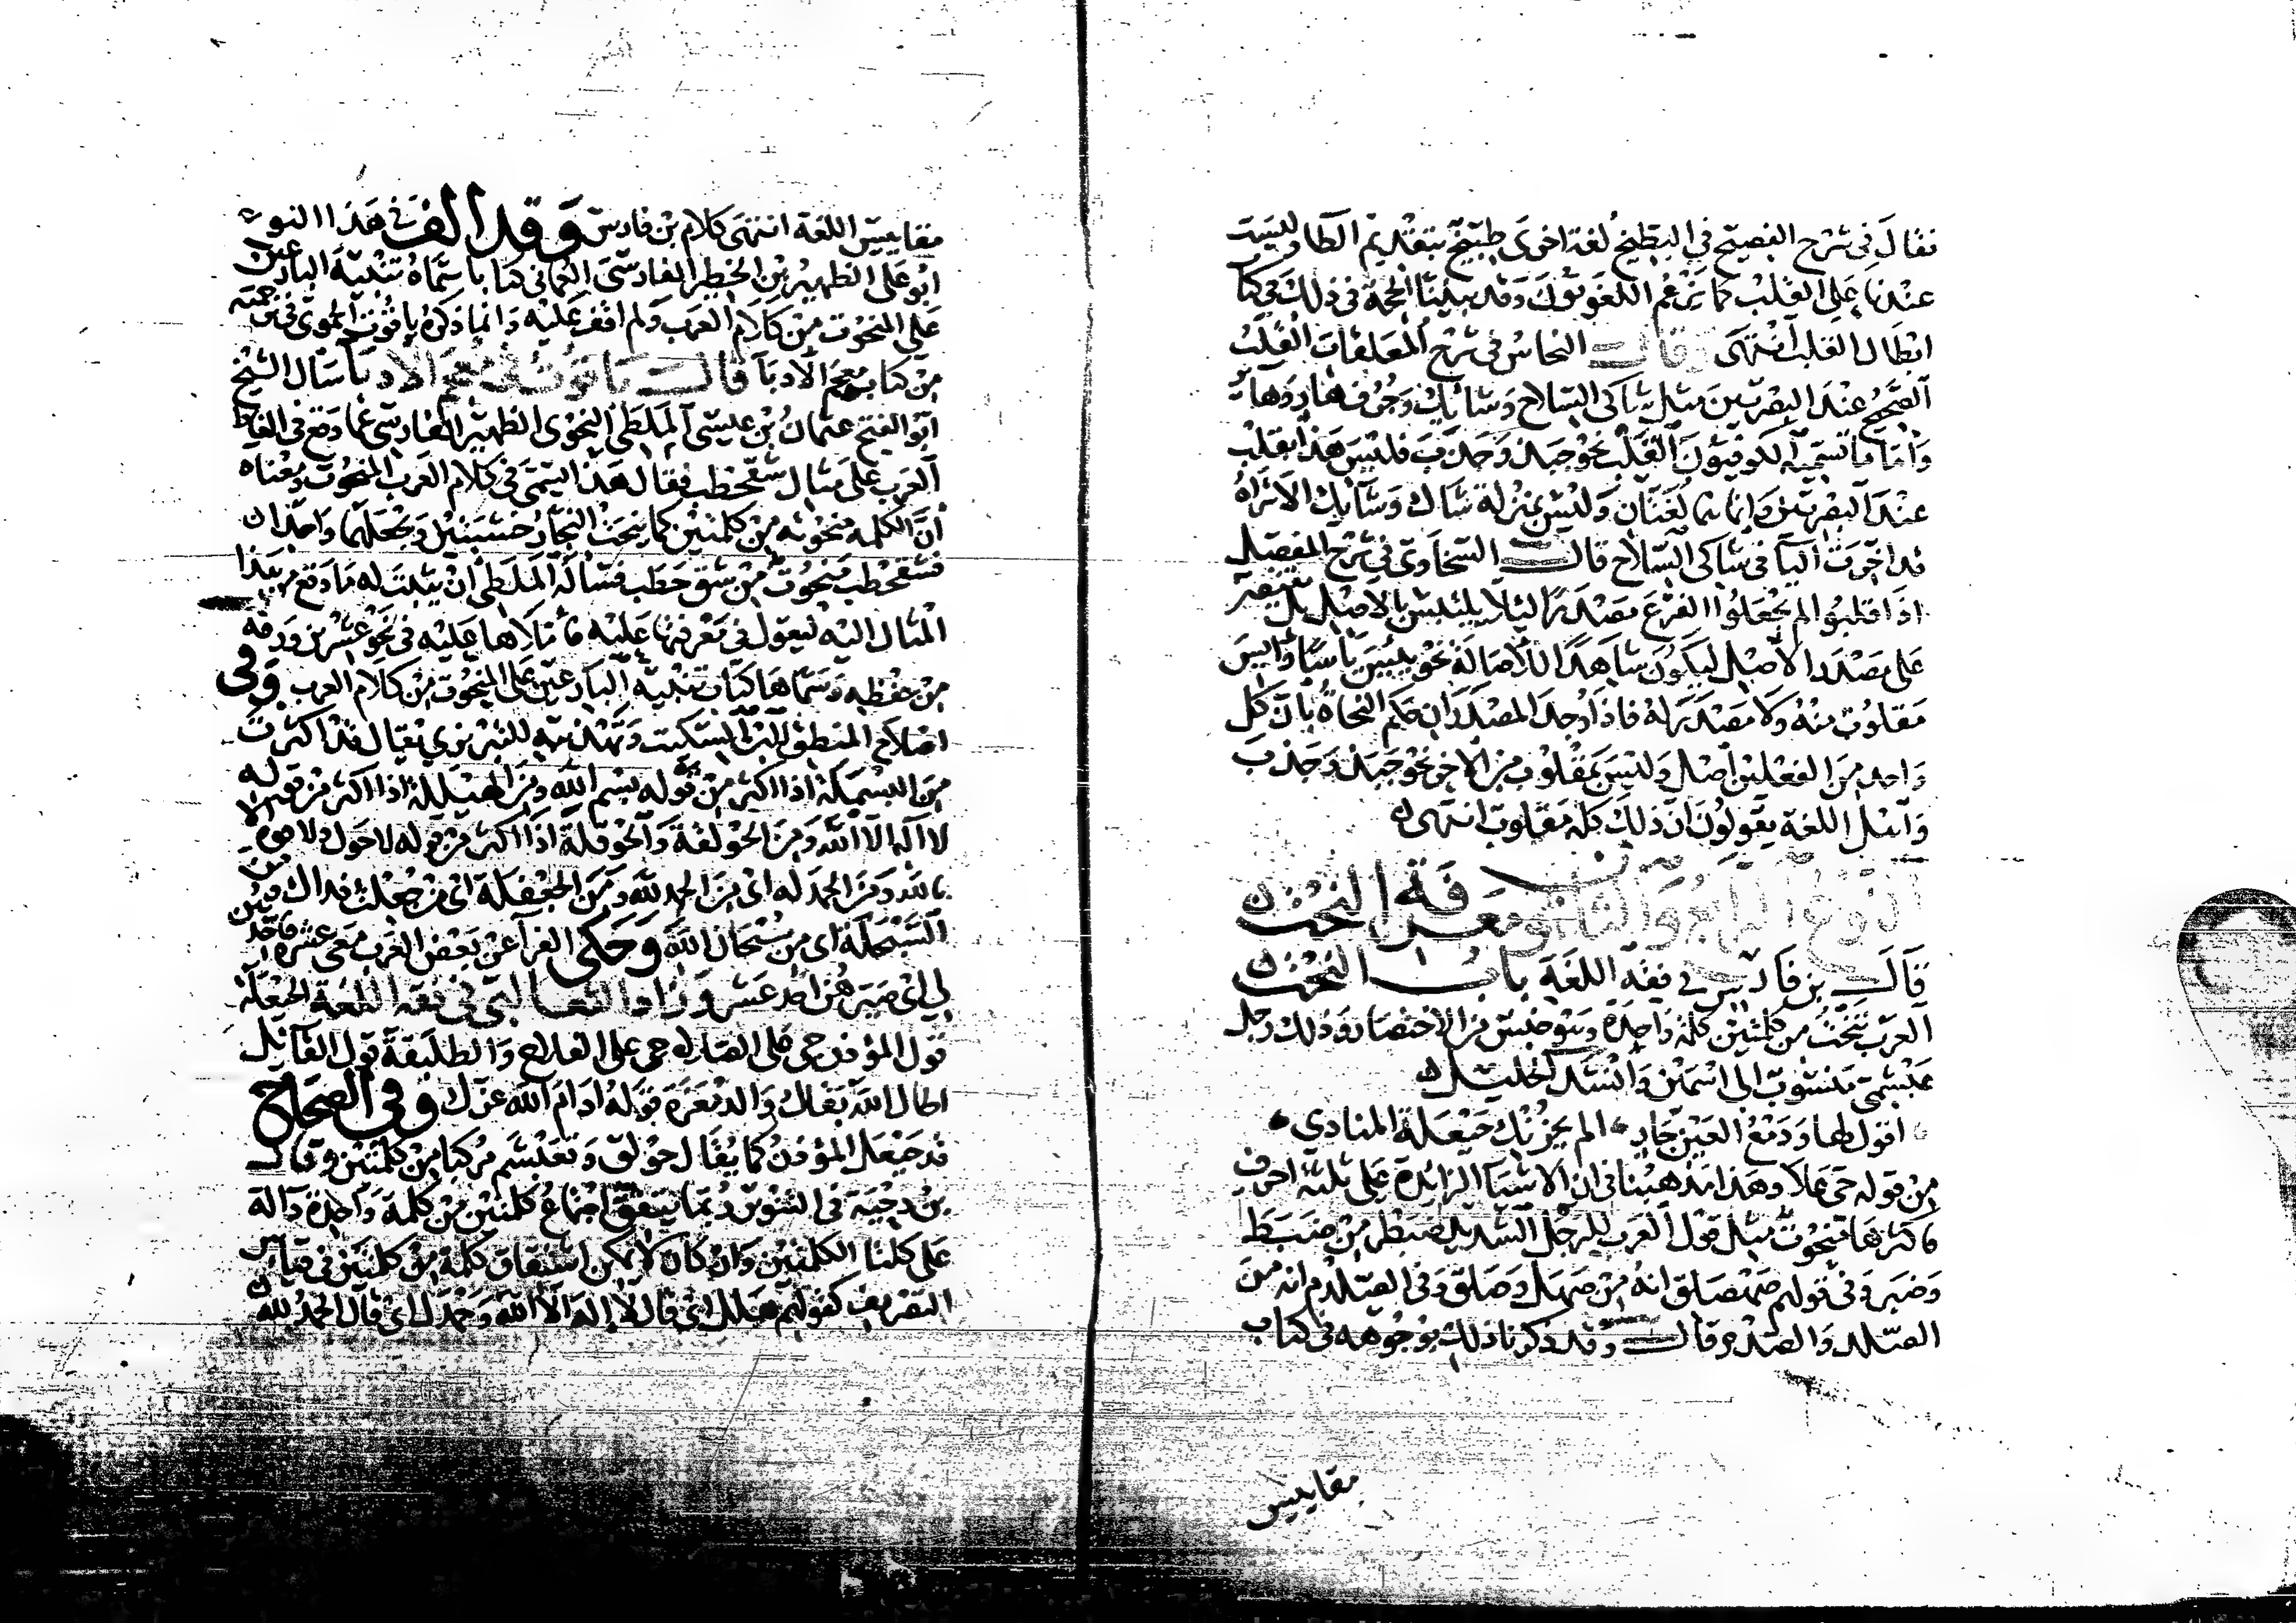 فقال في شرح الفصيح في البطيخ لغة اخرى طبيخ بتقديم الطا وليست
عندنا على القلب كما يزعم اللغويون وقد بينا الحجة في ذلك في كتا
ابطال القلب انتهى وقال النحاس في شرح المعلقات القلب
الصحيح عند البصريين مثل شاكي السلاح وشائك وجرف هار وهائر
واما ما تسميه الكوفيون القلب نحو جبذ وجذب فليس هذا بقلب
عند البصريين وانما هما لغتان وليس بمنزلة شاك وشائك الا تراه
قد اخرت اليا في شاكي السلاح قال السخاوي في شرح المفصل
اذا قلبوا لم يجعلوا الفرع مصدرا لئلا يلتبس بالاصل بل يقتصر
على مصدر الاصل ليكون شاهدا للاصالة نحو ييس ياسا وايس
مقلوب منه ولا مصدر له فاذا وجد المصدران حكم النحاة بان كل
واحد من الفعلين اصل وليس بمقلوب من الاخر نحو جبذ وجذب
واهل اللغة يقولون ان ذلك كله مقلوب انتهى
النوع الرابع والثلثون معرفة النحت
قال بن فارس في فقه اللغة باب النحت
العرب تنحت من كلمتين كلمة واحدة وهو جنس من الاختصار وذلك رجل
عبشمي منسوب الى اسمين وانشد الخليل
اقول لها ودمع العين جار الم يحزنك حيعلة المنادي
من قوله حي على وهذا مذهبنا في ان الاشيا الزائدة على ثلثة احرف
فاكثرها منحوت مثل قول العرب للرجل الشديد ضبطر من ضبط
وضبر وفي قولهم صهصلق انه من صهل وصلق وفي الصلدم انه من
الصلد والصدم قال وقد ذكرنا ذلك بوجوهه في كتاب
مقاييس
مقاييس اللغة انتهى كلام بن فارس وقد الف في هذا النوع
ابو على الظهير بن الخطير الفارسي العماني كتابا سماه تنبيه البارعين
على المنحوت من كلام العرب ولم اقف عليه وانما ذكره ياقوت الحموي في ترجمته
من كتابه معجم الادبا قال ياقوت في معجم الادبا سال الشيخ
ابو الفتح عثمان بن عيسى الملطي النحوي الظهير الفارسي عما وقع في الفاظ
العرب على مثال شقحطب فقال هذا يسمى في كلام العرب المنحوت ومعناه
ان الكلمة منحوتة من كلمتين كما ينحت النجار خشبتين ويجعلهما واحدا
فشقحطب منحوت من شق حطب فساله الملطي ان يثبت له ما وقع من هذا
المثال اليه ليعول في معرفتها عليه فاملاها عليه في نحو عشرين ورقة
من حفظه وسماها كتاب تنبيه البارعين على المنحوت من كلام العرب وفي
اصلاح المنطق لابن السكيت وتهذيبه للتبريزي يقال قد اكثرت
من البسملة اذا اكثر من قوله بسم الله ومن الهيللة اذا اكثر من قوله
لا اله الا الله ومن الحولقة والحوقلة اذا اكثر من قوله لا حول ولا قوة الا
بالله ومن الحمدلة اي من الحمد لله ومن الجعفلة اي من جعلت فداك ومن
السبحلة اي من سبحان الله وحكى الفرا عن بعض العرب معي عشرة فاحدهن
لي اي صيرهن احد عشر وزاد الثعالبي في فقه اللغة الحيعلة
قول المؤذن حي على الصلاة حي على الفلاح والطلبقة قول القائل
اطال الله بقاك والدمعزة قوله ادام الله عزك وفي الصحاح
قد حيعل المؤذن كما يقال حولق وتعبشم مركبا من كلمتين وقال
بن دحية في التنوير ربما يتفق اجتماع كلمتين من كلمة واحدة دالة
على كلتا الكلمتين وان كان لا يمكن اشتقاق كلمة من كلمتين في قياس
التصريف كقولهم هلل اي قال لا اله الا الله وحمدل اي قال الحمد لله